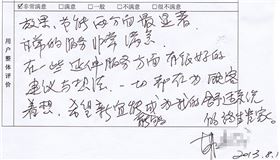 ☑非常满意 □满意 □一般 □不满意 □很不满意
用户整体评价
效果、节能两方面最显著
非常的服务非常满意
在一些延伸服务方面有很好的
建议与想法、一切都在为顾客
着想。希望新宜能成为我的舒适系统
能够 的终生管家。
胡
2013.8.1